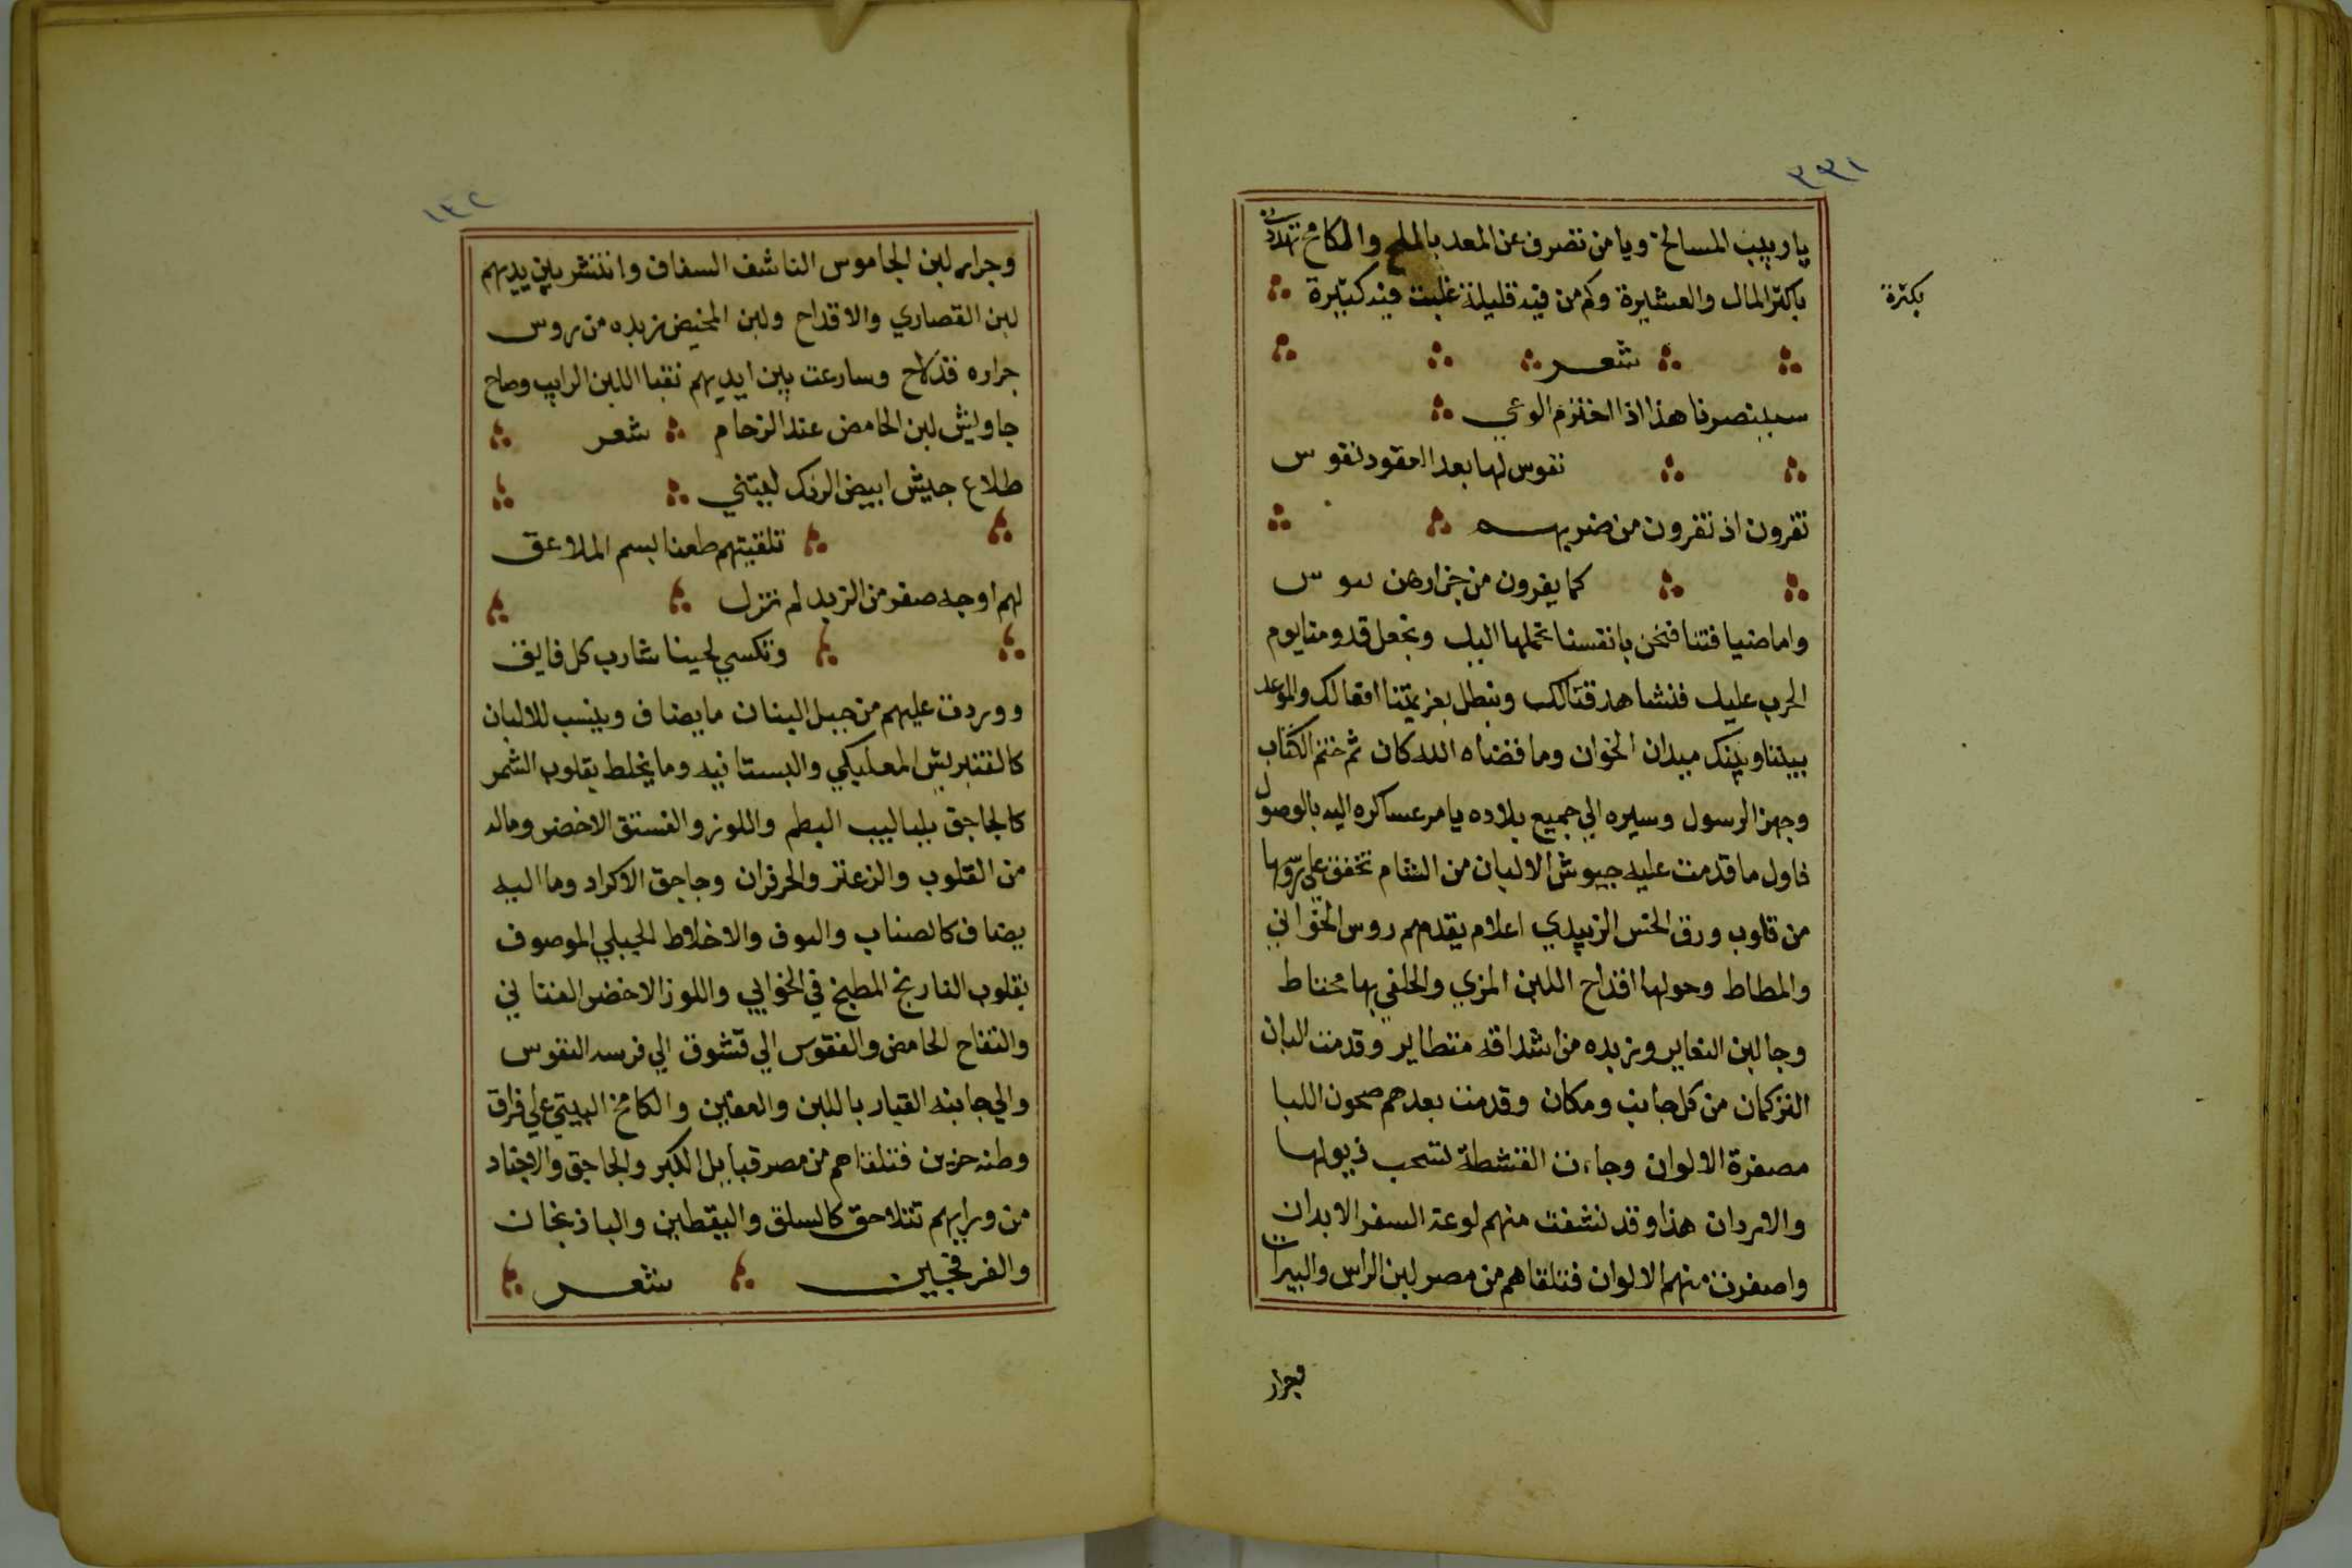 ٣٣١
يا ربيب المسالخ ويا من تصرف عن المعد بالملح والمكامخ تهددت
باكثر المال والعشيرة وكم من فيه قليلة غلبت فيه كثيرة
بكثرة
شعر
سيبنصرنا هذا اذا اختزم الوعي
نفوس لها بعد الحقود نفوس
تفرون اذ تفرون من ضربه
كما يفرون من جزارهن
واما ضيافتنا فنحن بانفسنا نحملها اليك ونجعل قدومنا يوم
الحرب عليك فنشاهد قتالك ونبطل بعزيمتنا افعالك والموعد
بيننا وبينك ميدان الخوان وما قضاه الله كان ثم ختم الكتاب
وجهز الرسول وسيره الي جميع بلاده يامر عساكره اليه بالوصول
فاول ما قدمت عليه جيوش الالبان من الشام تخفق علي روسها
من قلوب ورق الخس الزبيدي اعلام يقدمهم روس الخوابي
والمطاط وحولها اقداح اللبن المزي والحلفي بها محتاط
وجا لبن النعاير وزبده من اشداقه متطاير وقدمت البان
التركمان من كل جانب ومكان وقدمت بعدهم صحون اللبا
مصفرة الالوان وجاءت القشطة تسحب ذيولها
والاردان هذا وقد نشفت منهم لوعة السفر الابدان
واصفرت منهم الالوان فتلقاهم من مصر لبن الراس والبيرات
وجرار
١٣٢
وجرار لبن الجاموس الناشف السفاف وانتشر بين يديهم
لبن القصاري والاقداح ولبن المخيض زبده من روس
جراره قد لاح وسارعت بين ايديهم نقبا اللبن الرايب وصاح
جاويش لبن الحامض عند الزحام شعر
طلاع جيش ابيض الرنك ليتني
تلقيتهم طعنا بسم الملاعق
لهم اوجه صفر من الزبد لم تزل
وتكسي لحينا شارب كل فايق
ووردت عليهم من جبل البنان ما يضاف وينسب للالبان
كالقنبريش المعلبكي والبستانيه وما يخلط بقلوب الشمر
كالجاجق بلباليب البطم واللوز والفستق الاخضر وماله
من القلوب والزعتر والحرفران وجاجق الاكراد وما اليه
يضاف كالصناب والبوف والاخلاط الجبلي الموصوف
بقلوب النارنج المطبخ في الخوابي واللوز الاخضر العنتابي
والتفاح الحامض والفقوس الي قشوق الي فرسه النفوس
والي جانبه القيار باللبن والعفين والكامخ البيتي علي فراق
وطنه حزين فتلقاهم من مصر قبايل الكبر والجاجق والاجناد
من ورايهم تتلاحق كالسلق واليقطين والباذنجان
والفرفحين شعر